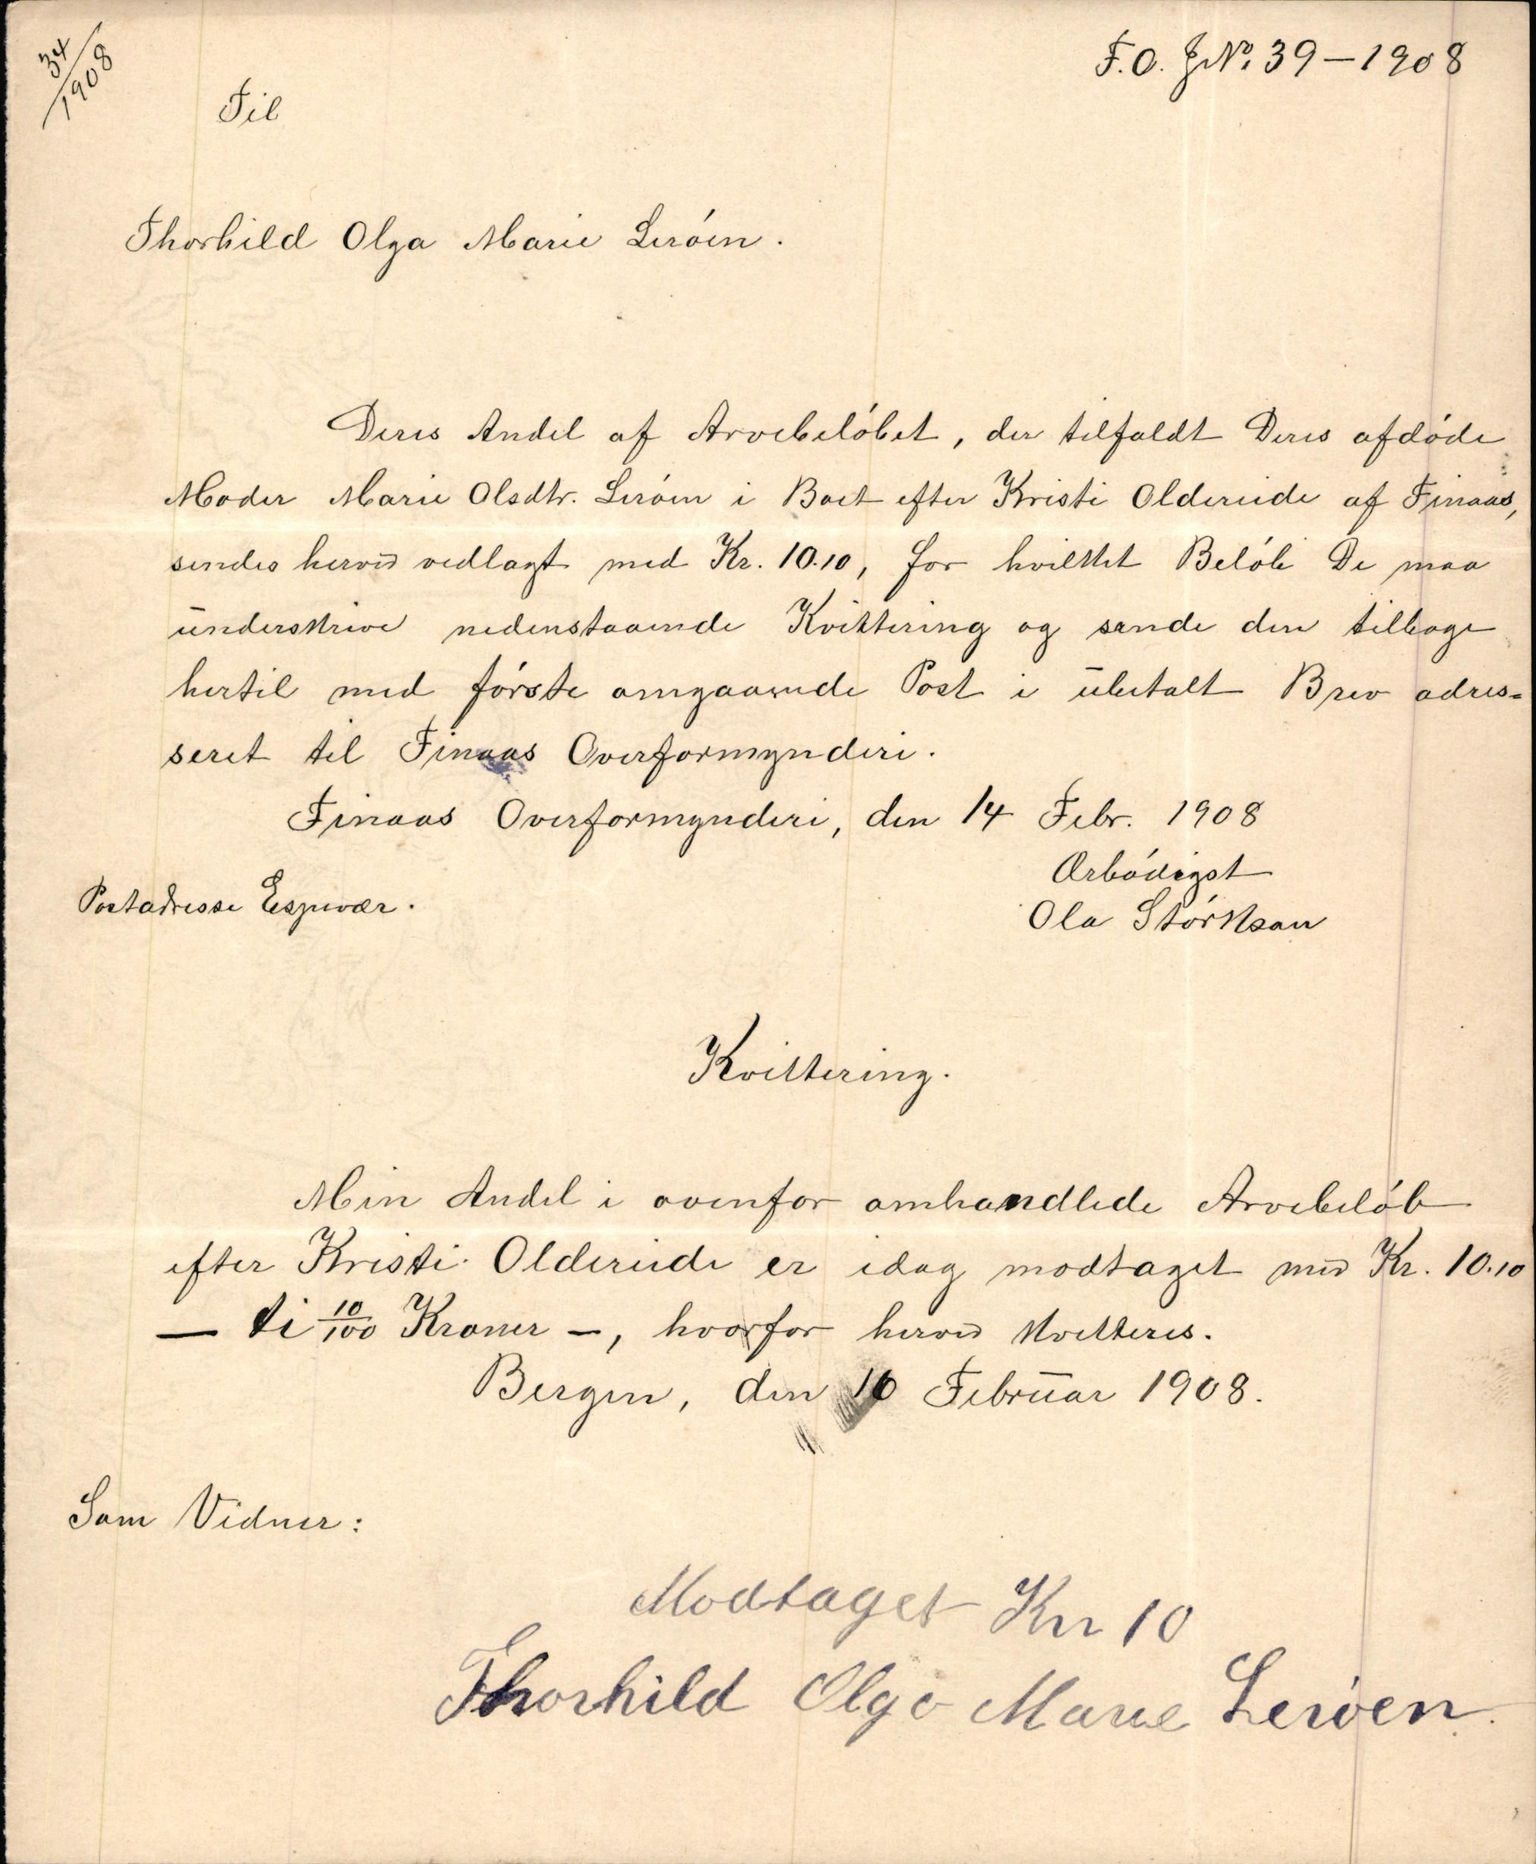 34/1908
F.O. J.No. 39 – 1908
Til
Thorhild Olga Marie Lerøen.
Deres Andel af Arvebeløbet, der tilfaldt Deres afdøde
Moder Marie Olsdtr. Lerøen i Boet efter Kristi Oldereide af Finaas,
sendes herved vedlagt med Kr. 10.10, for hvilket Beløb De maa
underskrive nedenstaaende Kvittering og sende den tilbage
hertil med første omgaaende Post i ubetalt Brev adres=
seret til Finaas Overformynderi.
Finaas Overformynderi, den 14 Febr. 1908
Ærbødigst
Postadresse Espevær.
Ola Størkson
Kvittering.
Min Andel i ovenfor omhandlede Arvebeløb
efter Kristi Oldereide er idag modtaget med Kr. 10.10
— ti 10/100 Kroner —, hvorfor herved kvitteres.
Bergen, den 16 Februar 1908.
Som Vidner:
Modtaget Kr 10
Thorhild Olga Marie Lerøen.